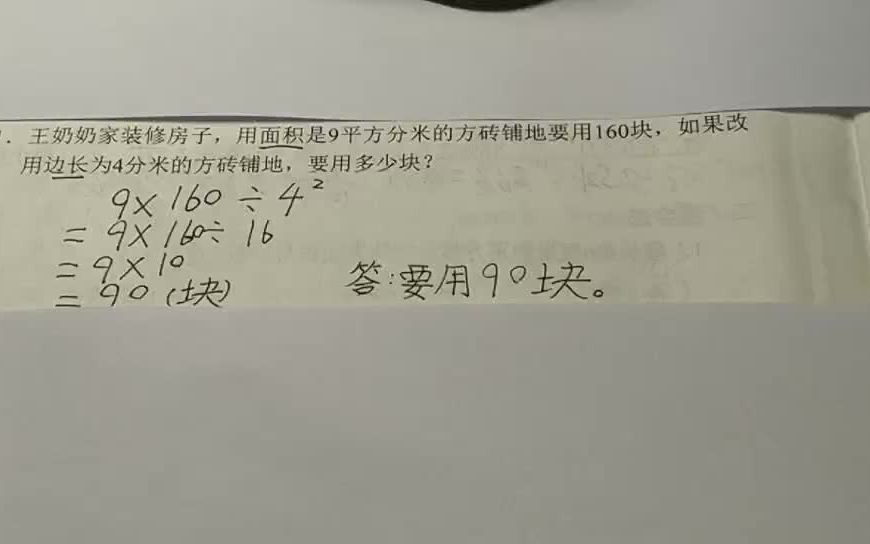 . 王奶奶家装修房子，用面积是9平方分米的方砖铺地要用160块，如果改
用边长为4分米的方砖铺地，要用多少块？
9×160÷4²
=9×160÷16
=9×10
=90（块） 答:要用90块。